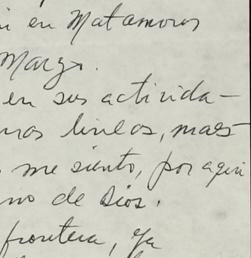 en Matamoros
Marzo.
en sus activida-
mos lineos, maes-
me siento, por aqui
no de Dios.
frontera, ya